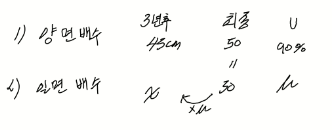 3년후 최종 U
1) 양면배수 45cm 50 90%
=
2) 일면배수 x 30 μ
xμ